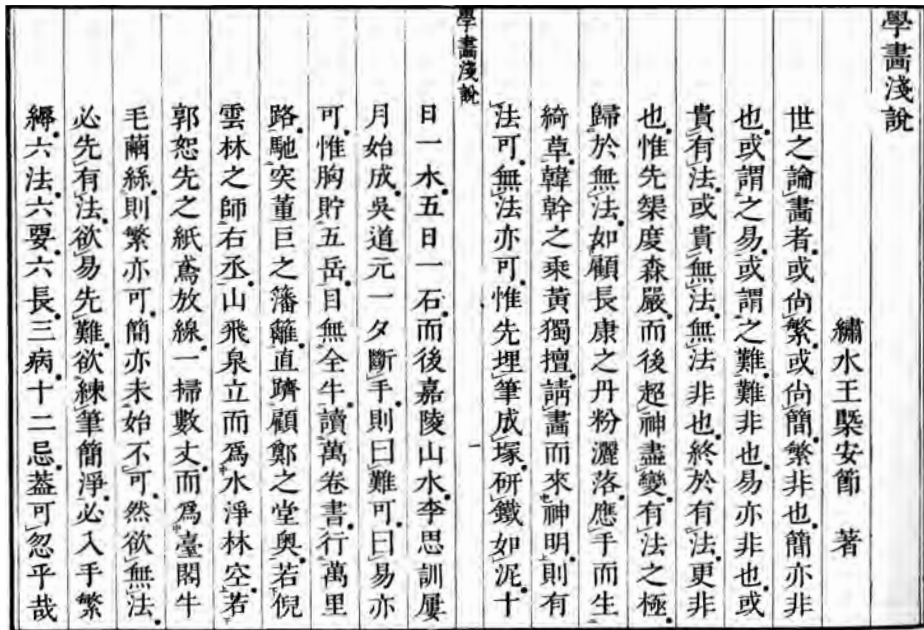 學畫淺說
繡水王槩安節 著
世之論畫者或尙繁或尙簡繁非也簡亦非
也或謂之易或謂之難難非也易亦非也或
貴有法或貴無法無法非也終於有法更非
也惟先榘度森嚴而後超神盡變有法之極
歸於無法如顧長康之丹粉灑落應手而生
綺草韓幹之乘黃獨擅請畫而來神明則有
法可無法亦可惟先埋筆成塚研鐵如泥十
學畫淺說
一
日一水五日一石而後嘉陵山水李思訓屢
月始成吳道元一夕斷手則曰難可曰易亦
可惟胸貯五岳目無全牛讀萬卷書行萬里
路馳突董巨之藩籬直躋顧鄭之堂奧若倪
雲林之師右丞山飛泉立而爲水淨林空若
郭恕先之紙鳶放線一掃數丈而爲臺閣牛
毛繭絲則繁亦可簡亦未始不可然欲無法
必先有法欲易先難欲練筆簡淨必入手繁
縟六法六要六長三病十二忌蓋可忽乎哉